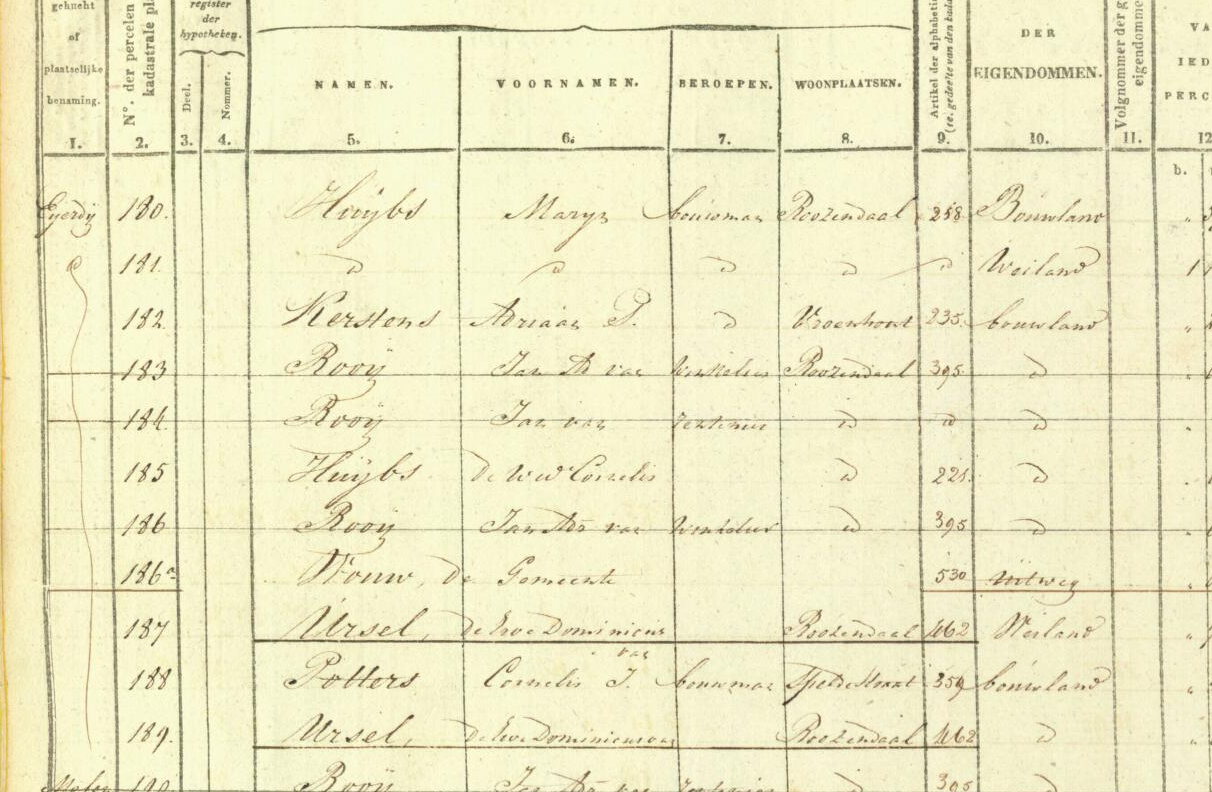 gehucht of plaatselijke benaming.
N°. der percelen kadastrale
register der hypotheken.
Deel. Nommer.
NAMEN. VOORNAMEN. BEROEPEN. WOONPLAATSEN.
Artikel der
DER EIGENDOMMEN.
Volgnommer der
eigendomme
VA
IED
PERC
1. 2. 3. 4. 5. 6. 7. 8. 9. 10. 11. 12
b.
180. Huijbs Marijn bouwman Roozendaal 218 Bouwland
181. D D D D D Weiland
182. Kerstens Adriaan P. D Vroenhout 235. bouwland
183 Rooij Jan Ad van Winkelier Roozendaal 395 D
184. Rooij Jan van rentenier D D D
185 Huijbs de Wed Cornelis D 221. D
186 Rooij Jan Adr van Winkelier D 395 D
186a Wouw, de Gemeente 530 Uitweg
187 Ursel, de Erve Dominicus van Roozendaal 462 Weiland
188 Potters Cornelis J. bouwman Spelde Straat 359 bouwland
189. Ursel, de Erve Dominicus van Roozendaal 462 D
190 Rooij Jan Adr van rentenier D 395 D